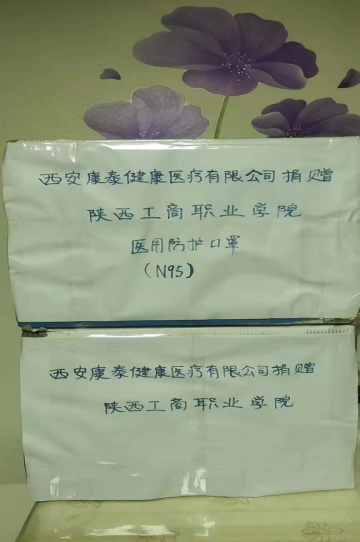 西安康泰健康医疗有限公司捐赠
陕西工商职业学院
医用防护口罩
(N95)
西安康泰健康医疗有限公司捐赠
陕西工商职业学院